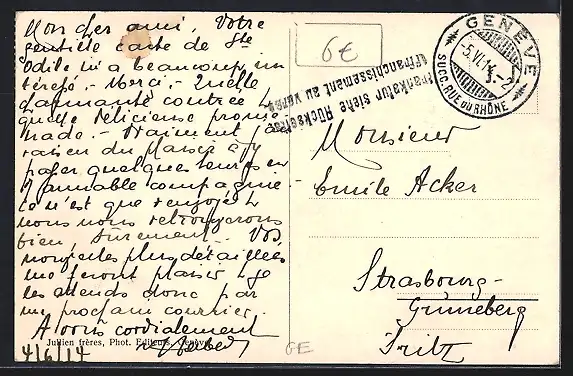 Mon cher ami, Votre
gentille carte de Ste
Odile m'a beaucoup in
téressé. Merci. Quelle
charmante contrée et
quelle délicieuse prome
nade. Vraiment j'ai
raison du plaisir d'y
passer quelques heures en
aimable compagnie.
Ce n'est que renvoyé et
nous nous retrouverons
bien, sûrement. Vos
nouvelles plus détaillées
me feront plaisir je
les attends donc par
un prochain courrier.
A vous cordialement
Jullien frères, Phot. Editeurs, Genève
4/6/14
6E
Frankatur siehe Rückseite
Affranchissement au verso
GENÈVE
5.VI.14
SUCC. RUE DU RHÔNE
Monsieur
Emile Acker
Strasbourg-
Gruneberg
6E